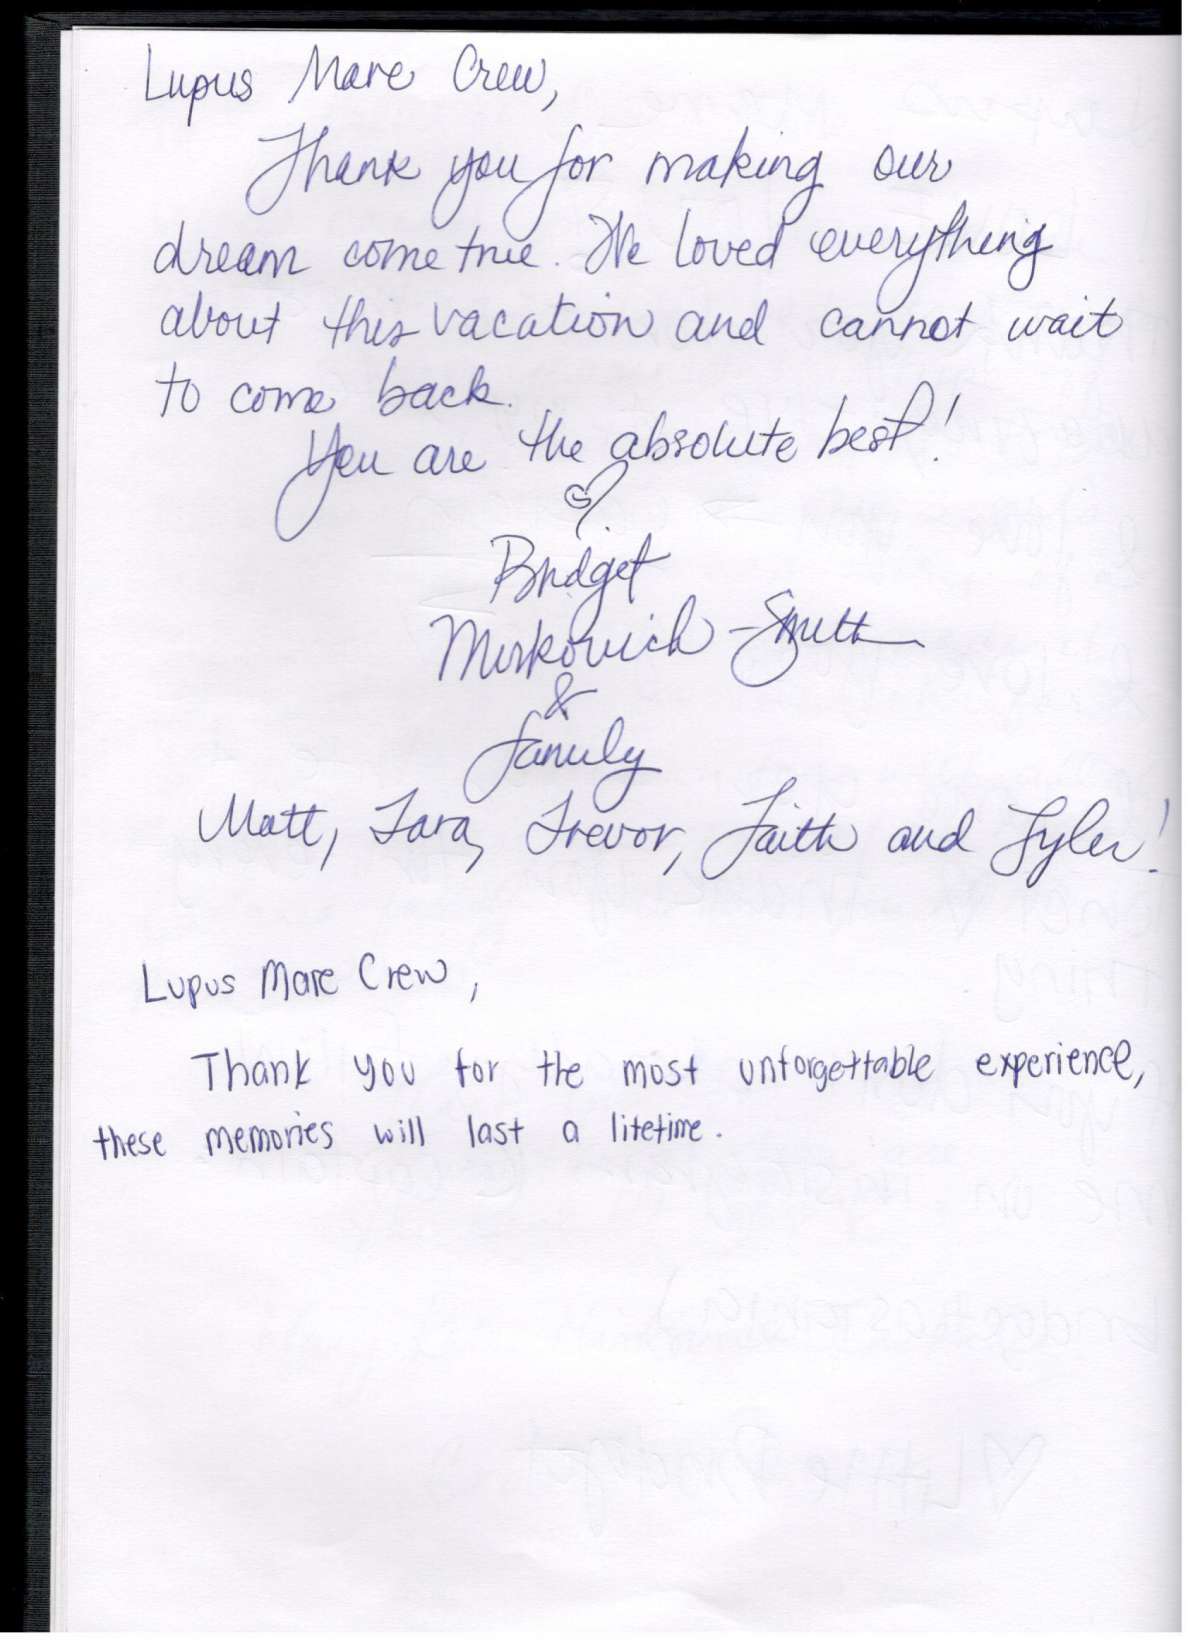 Lupus Mare Crew,
Thank you for making our
dream come true. We loved everything
about this vacation and cannot wait
to come back.
You are the absolute best!
Bridget
Mirkovich-Smith
&
family
Matt, Tara, Trevor, Faith and Tyler!
Lupus Mare Crew,
Thank you for the most unforgettable experience,
these memories will last a lifetime.